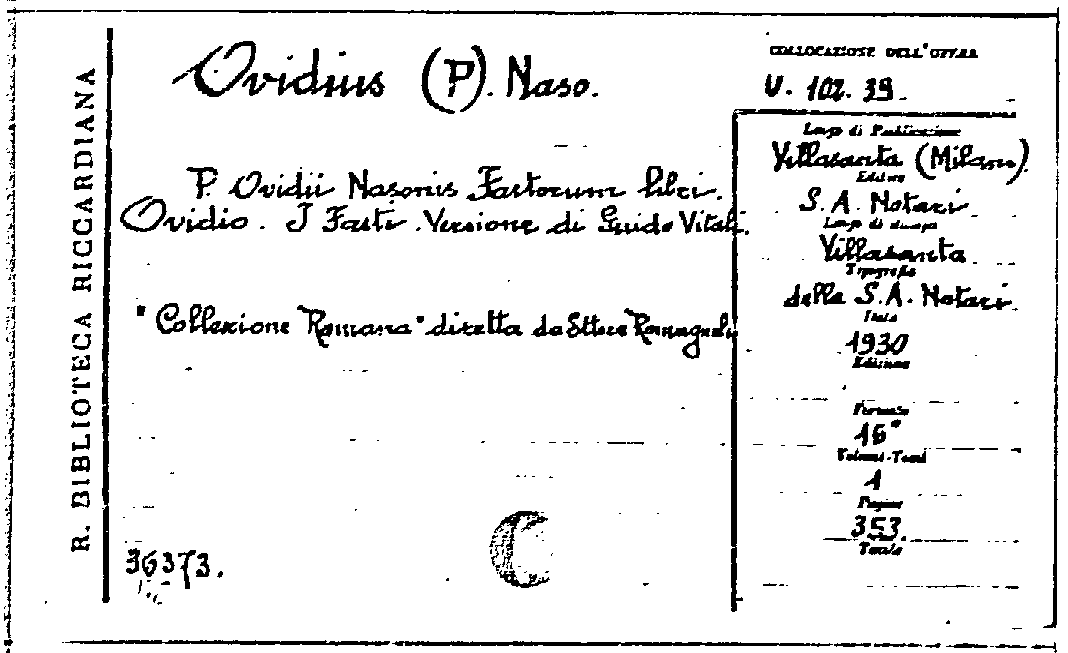 R. BIBLIOTECA RICCARDIANA
Ovidius (P). Naso.
P. Ovidii Nasonis Fastorum libri.
Ovidio. I Fasti. Versione di Guido Vitali.
"Collezione Romana" diretta da Ettore Romagnoli
36373.
COLLOCAZIONE DELL'OPERA
U. 102. 39.
Luogo di Pubblicazione
Villasanta (Milano).
Editore
S. A. Notari
Luogo di stampa
Villasanta
Tipografia
della S. A. Notari
Data
1930
Edizione
Formato
16°
Volumi-Tomi
1
Pagine
353.
Tavole